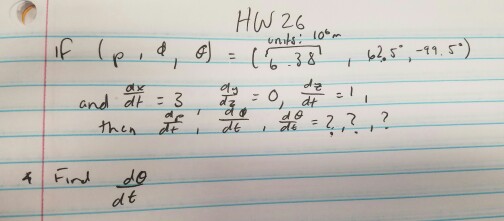 HW 26
units: 10⁶m
If (ρ, ϕ, θ) = (6.38, 62.5°, -99.5°)
and dx/dt = 3, dy/dz = 0, dz/dt = 1,
then dρ/dt, dϕ/dt, dθ/dt = ?, ?, ?
Find dθ/dt